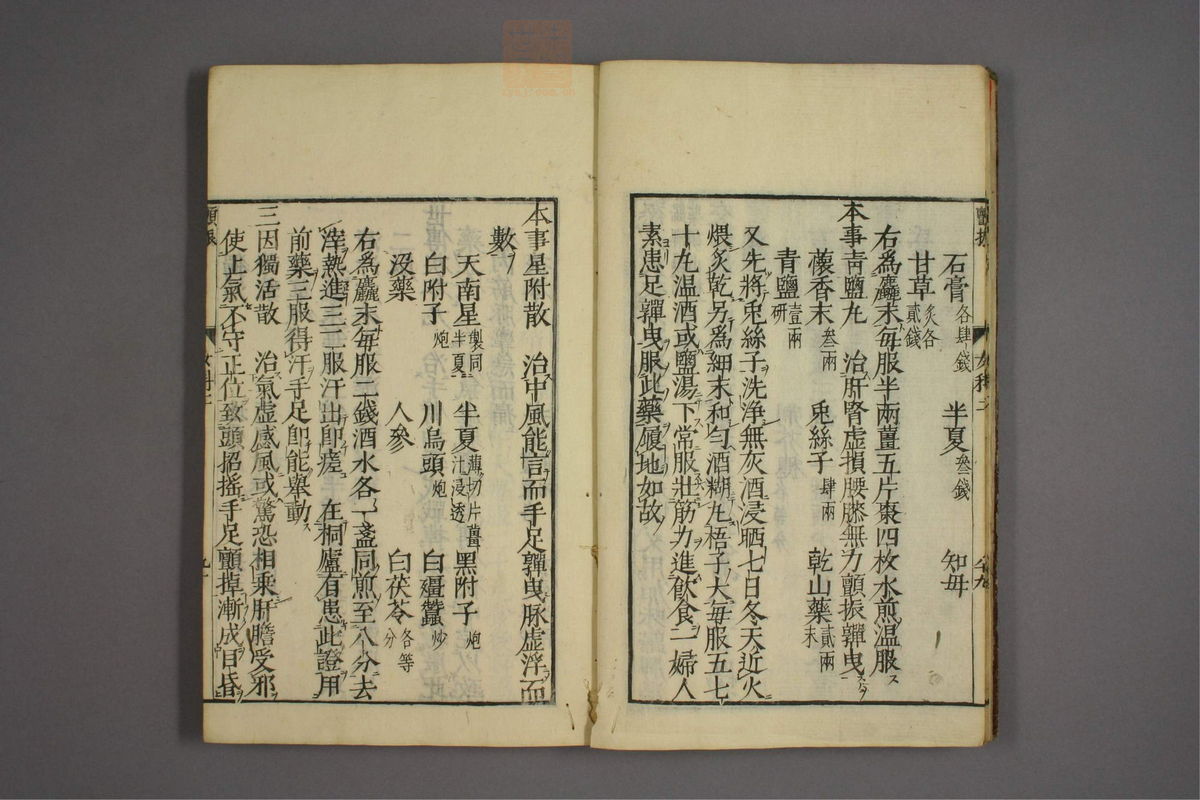 石膏各肆錢 半夏叁錢 知母
甘草炙各貳錢
右爲麤末毎服半兩薑五片棗四枚水煎温服
本事青鹽丸 治肝腎虛損腰膝無力顫振軃曳
蘹香末叁兩 兎絲子肆兩 乾山藥末貳兩
青鹽研壹兩
又先將兎絲子洗浄無灰酒浸晒七日冬天近火
煨炙乾另爲細末和勻酒糊丸梧子大毎服五七
十丸温酒或鹽湯下常服壯筋力進飲食一婦人
素患足軃曳服此藥履地如故
本事星附散 治中風能言而手足軃曳脉虛浮而
數
天南星製同半夏 半夏薄切片薑汁浸透 黑附子炮
白附子炮 川烏頭炮 白殭蠶炒
没藥 人參 白茯苓各等分
右爲麤末毎服二錢酒水各一盞同煎至八分去
滓熱進三二服汗出即瘥 在桐廬有患此證用
前藥三服得汗手足即能舉動
三因獨活散 治氣虛感風或驚恐相乘肝膽受邪
使上氣不守正位致頭招搖手足顫掉漸成目昏